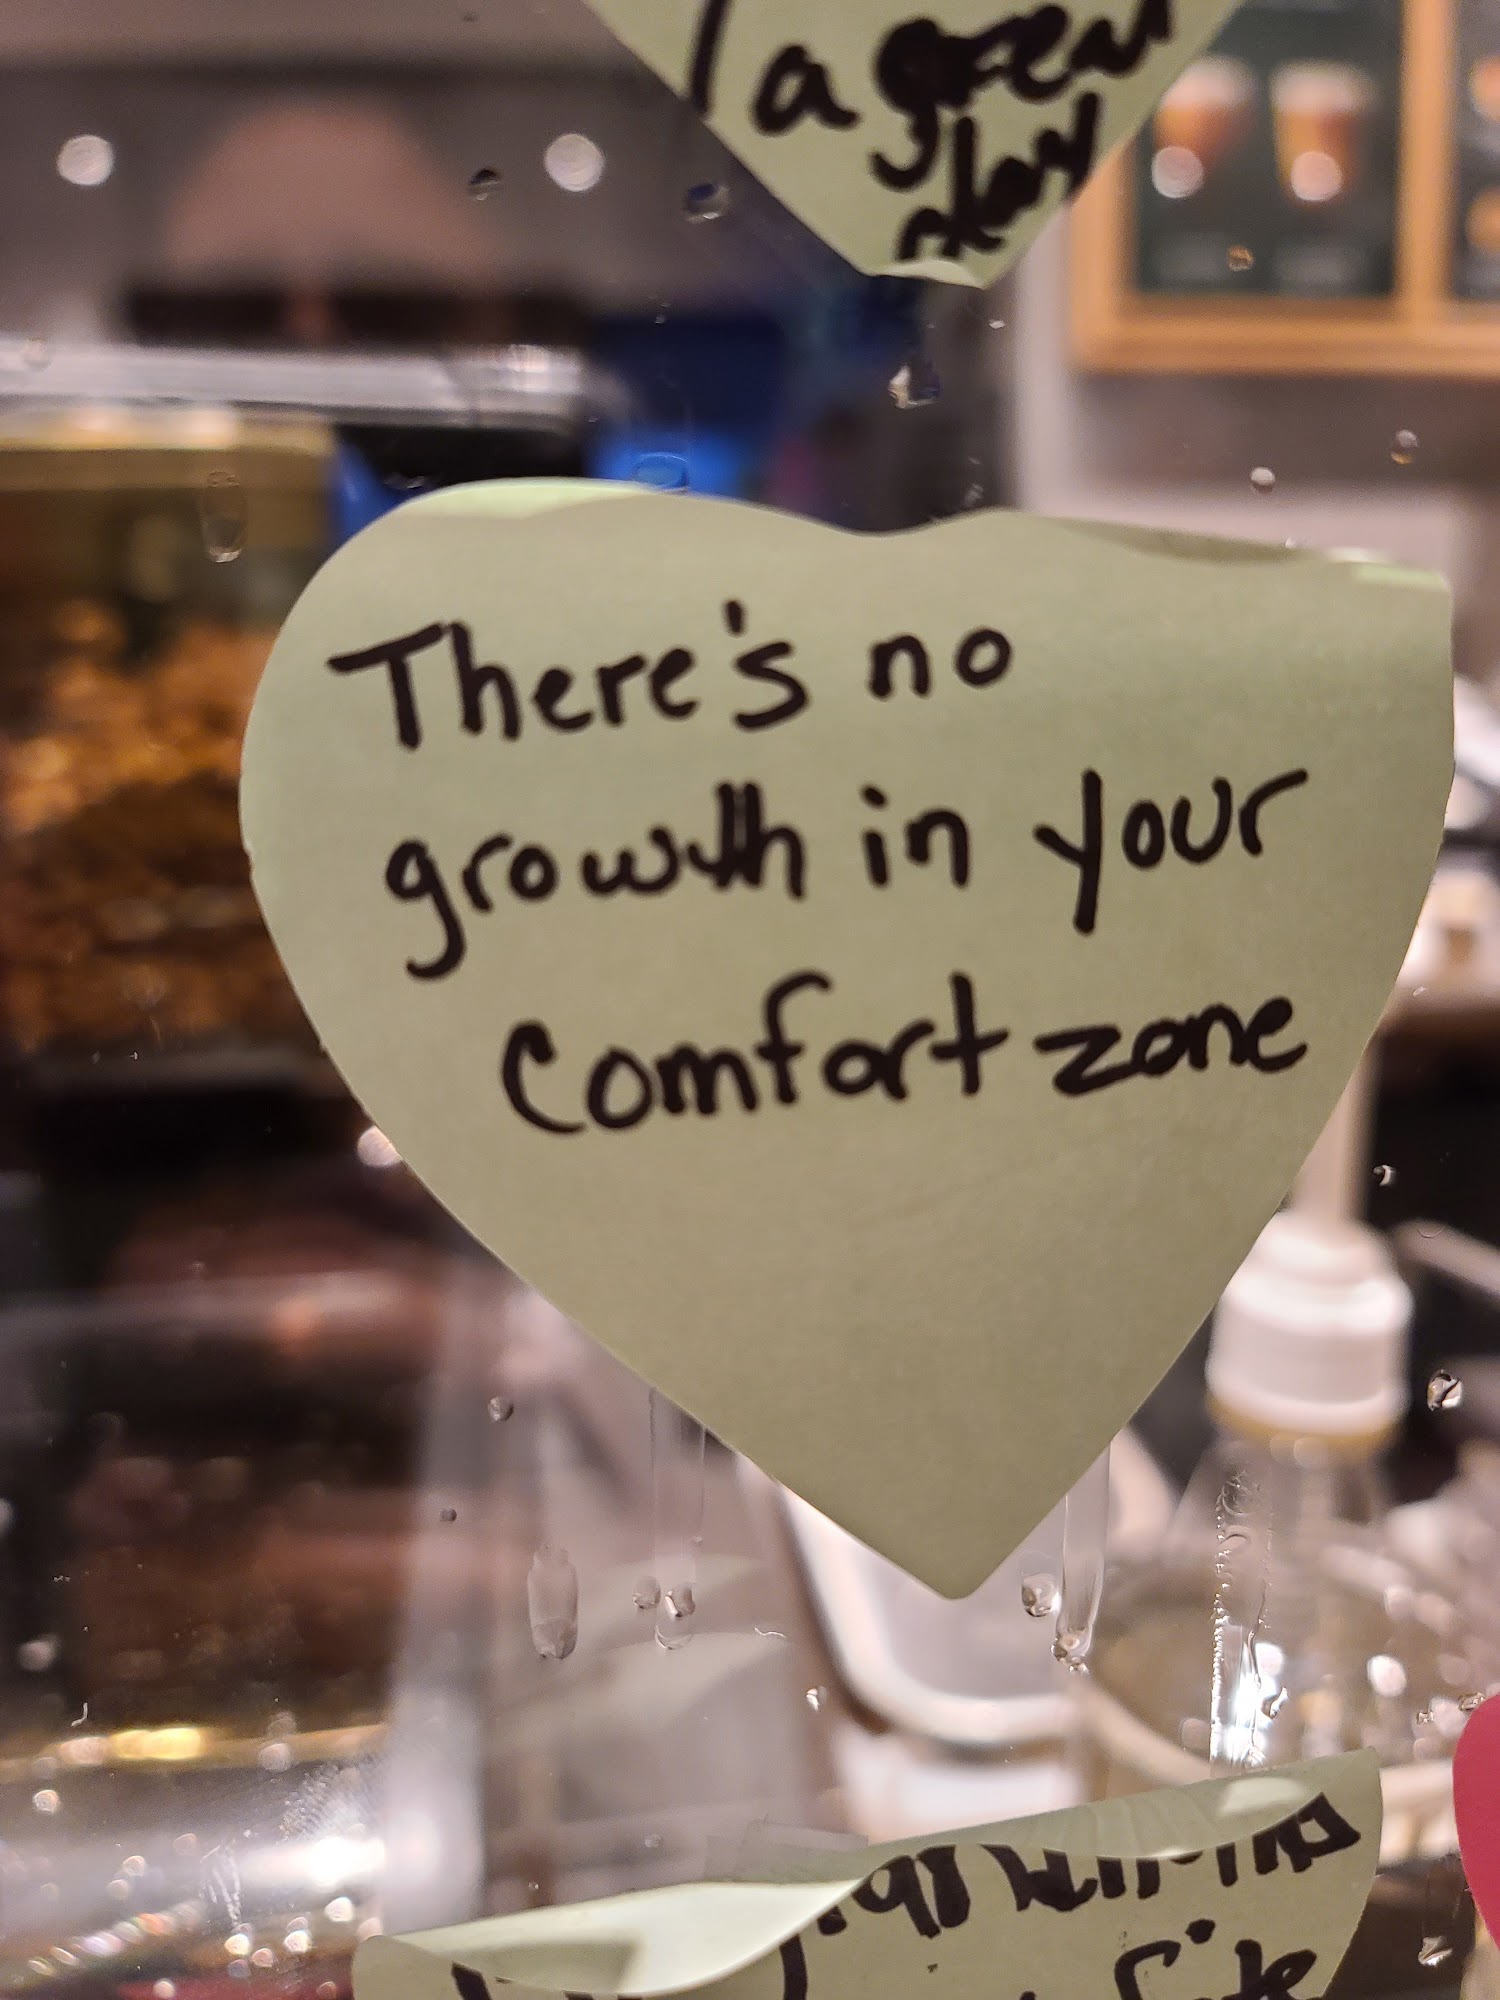 a great
day
There's no
growth in your
Comfort zone